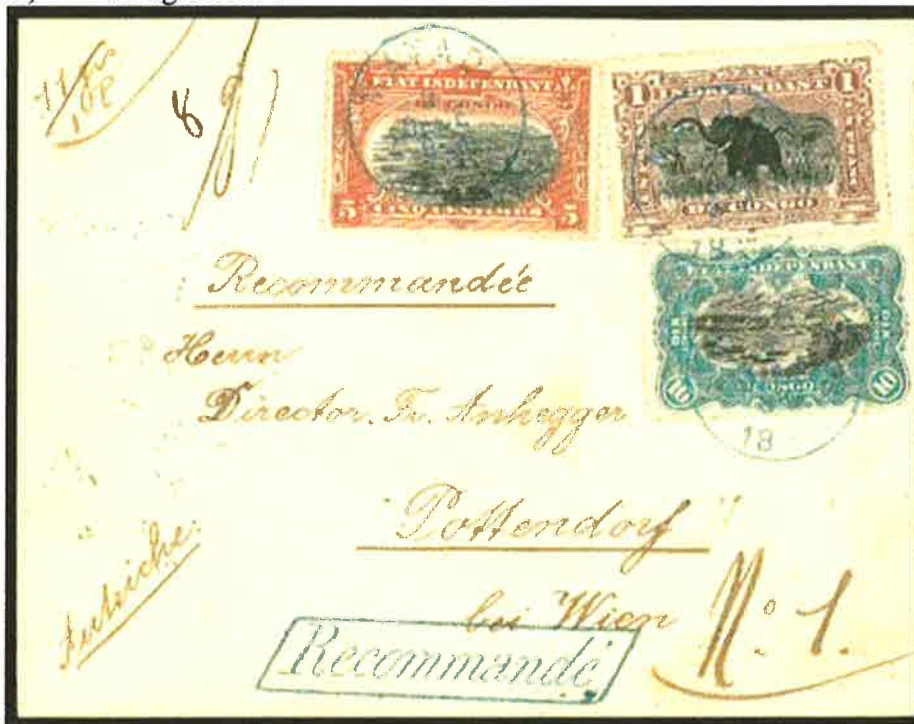 8
ETAT INDÉPENDANT
DU CONGO
5 CINQ CENTIMES 5
1 ETAT 1
INDÉPENDANT
FRANC
DU CONGO
18
ETAT INDÉPENDANT
DIX
DIX
10 CONGO 10
18
Recommandée
Herrn
Director Fr. Anhegger
Pottendorf
bei Wien
Autriche.
No. 1.
Recommandé